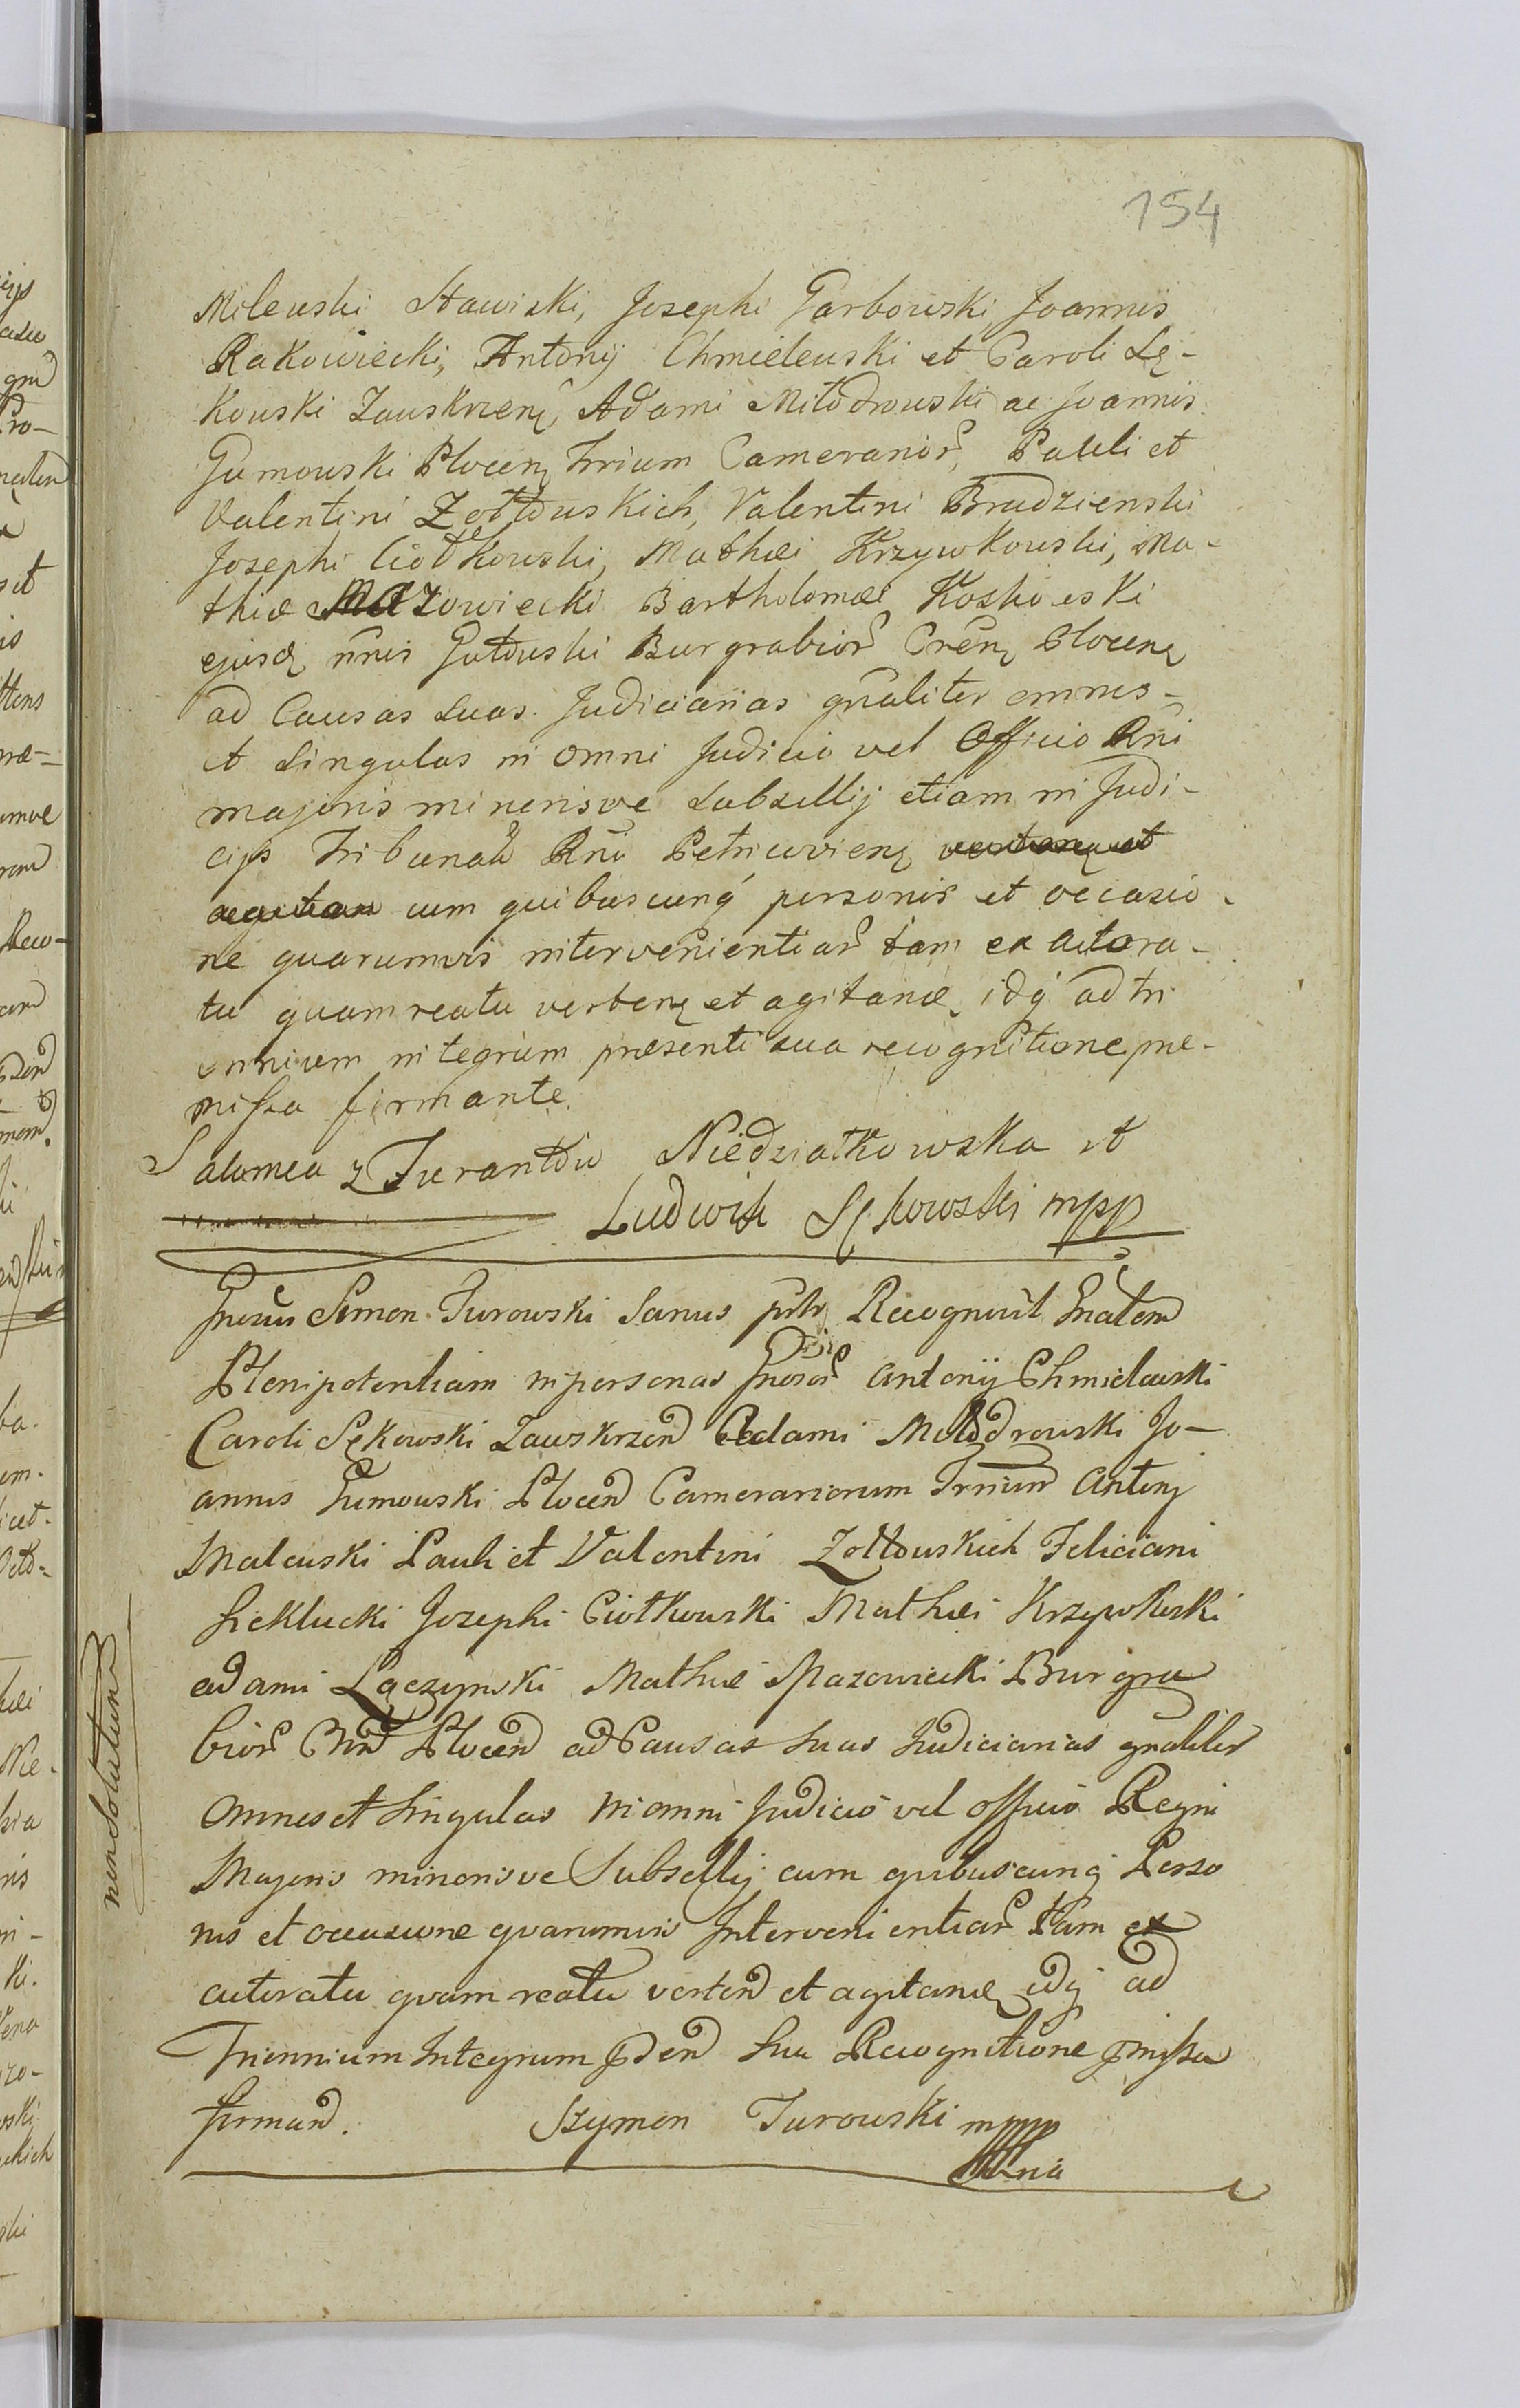 154
Milewski Stawiski, Josephi Garbowski Joannis
Rakowiecki, Antonij Chmielewski et Caroli Sę-
kowski Zawskrzen, Adami Miłodrowski ac Joannis
Gumowski Plocen Trium Camerarior, Pauli et
Valentini Zołtowskich, Valentini Brudzienski
Josephi Ciołkowski, Mathæi Krzywkowski, Ma-
thiæ Mazowiecki Bartholomæi Koskowski
ejusq nnis Gutowski Burgrabior Cren Plocen
ad Causas Suas Judiciarias gnaliter omnes
et Singulas in omni Judicio vel Officio Rni
majoris minorisve Subsellij etiam in Judi-
cijs Tribunal Rni Petricovien
cum quibuscunq personis et occasio-
ne quarumvis intervenientiar tam ex actora-
tu quam reatu verten et agitan idq ad tri
ennium integrum præsenti sua recognitione præ-
missa firmante.
Salomea z Turantów Niedziałkowska et
Ludwik Sękowski mpp
Gnosus Simon Turowski Sanus pntr Recognovit Gnalem
Plenipotentiam in personas Gnosor Antonij Chmielewski
Caroli Sękowski Zawskrzen Adami Miłodrowski Jo-
annis Gumowski Plocen Camerariorum Trium Antonj
Malewski Pauli et Valentini Zołtowskich Feliciani
Sieklucki Josephi Ciołkowski Mathæi Krzywkoski
adami Łączynski Mathiæ Mazowiecki Burgra
bior Plocen ad Causas Suas Judiciarias gnaliter
Omnes et Singulas in omni Judicio vel officio Regni
Majoris minorisve Subsellij cum quibuscunq Perso
nis et occasione quarumvis Intervenientiar Tam ex
actoratu quam reatu verten et agitan idq ad
Triennium Integrum Sua Recognitione pmissa
firman. Szymon Turowski mppp
non Solutum